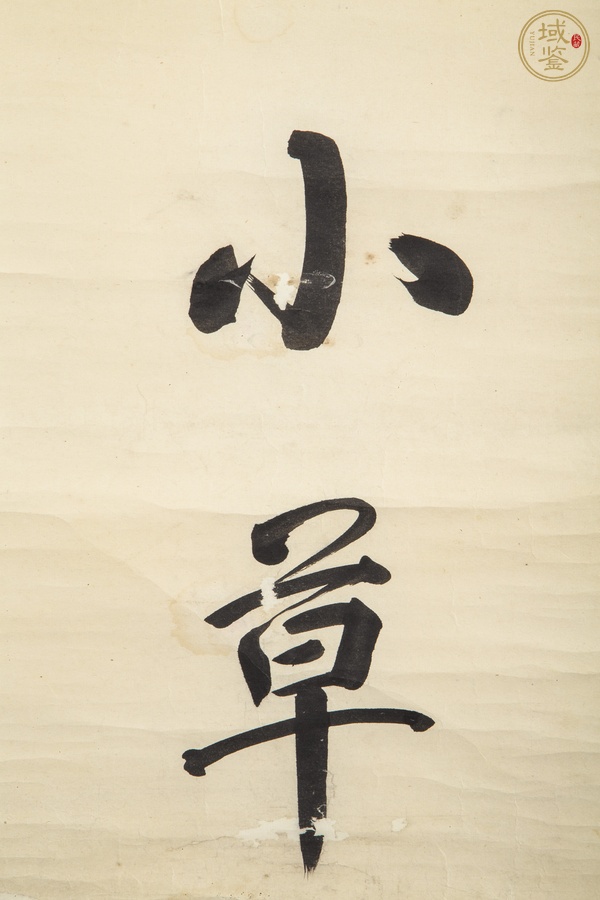 小草
域鉴
YUJIAN